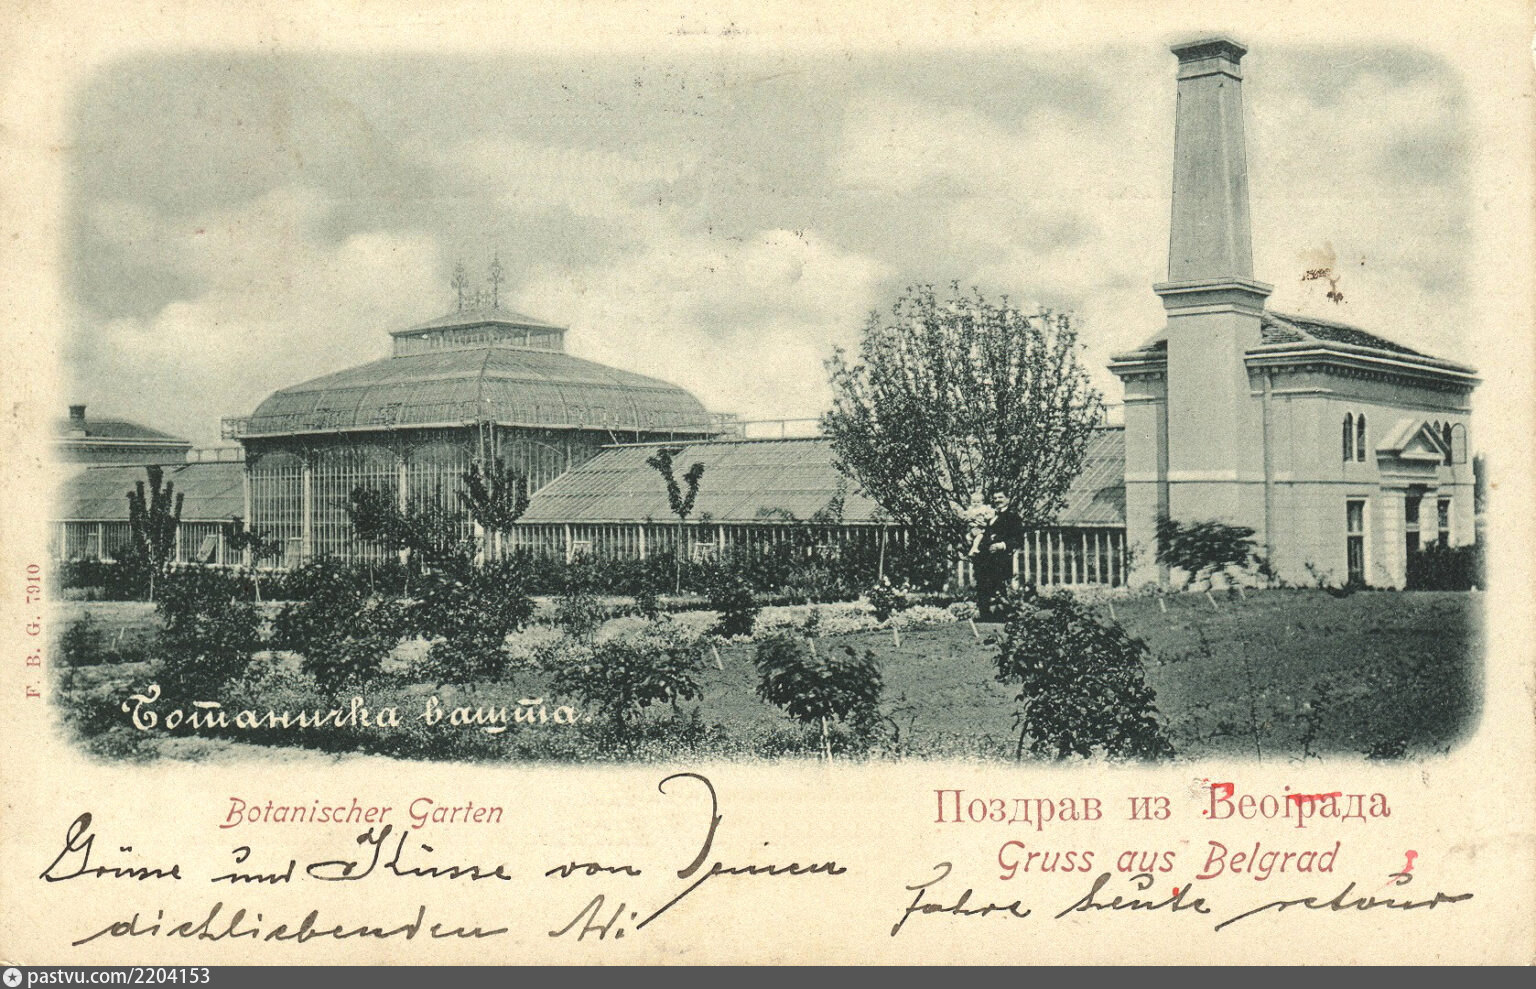 F. B. G. 7910
Ботаничка башта.
Botanischer Garten
Поздрав из Београда
Gruss aus Belgrad
Grüsse und Küsse von Deinen
dichliebenden Adi
fahre heute retour
pastvu.com/2204153